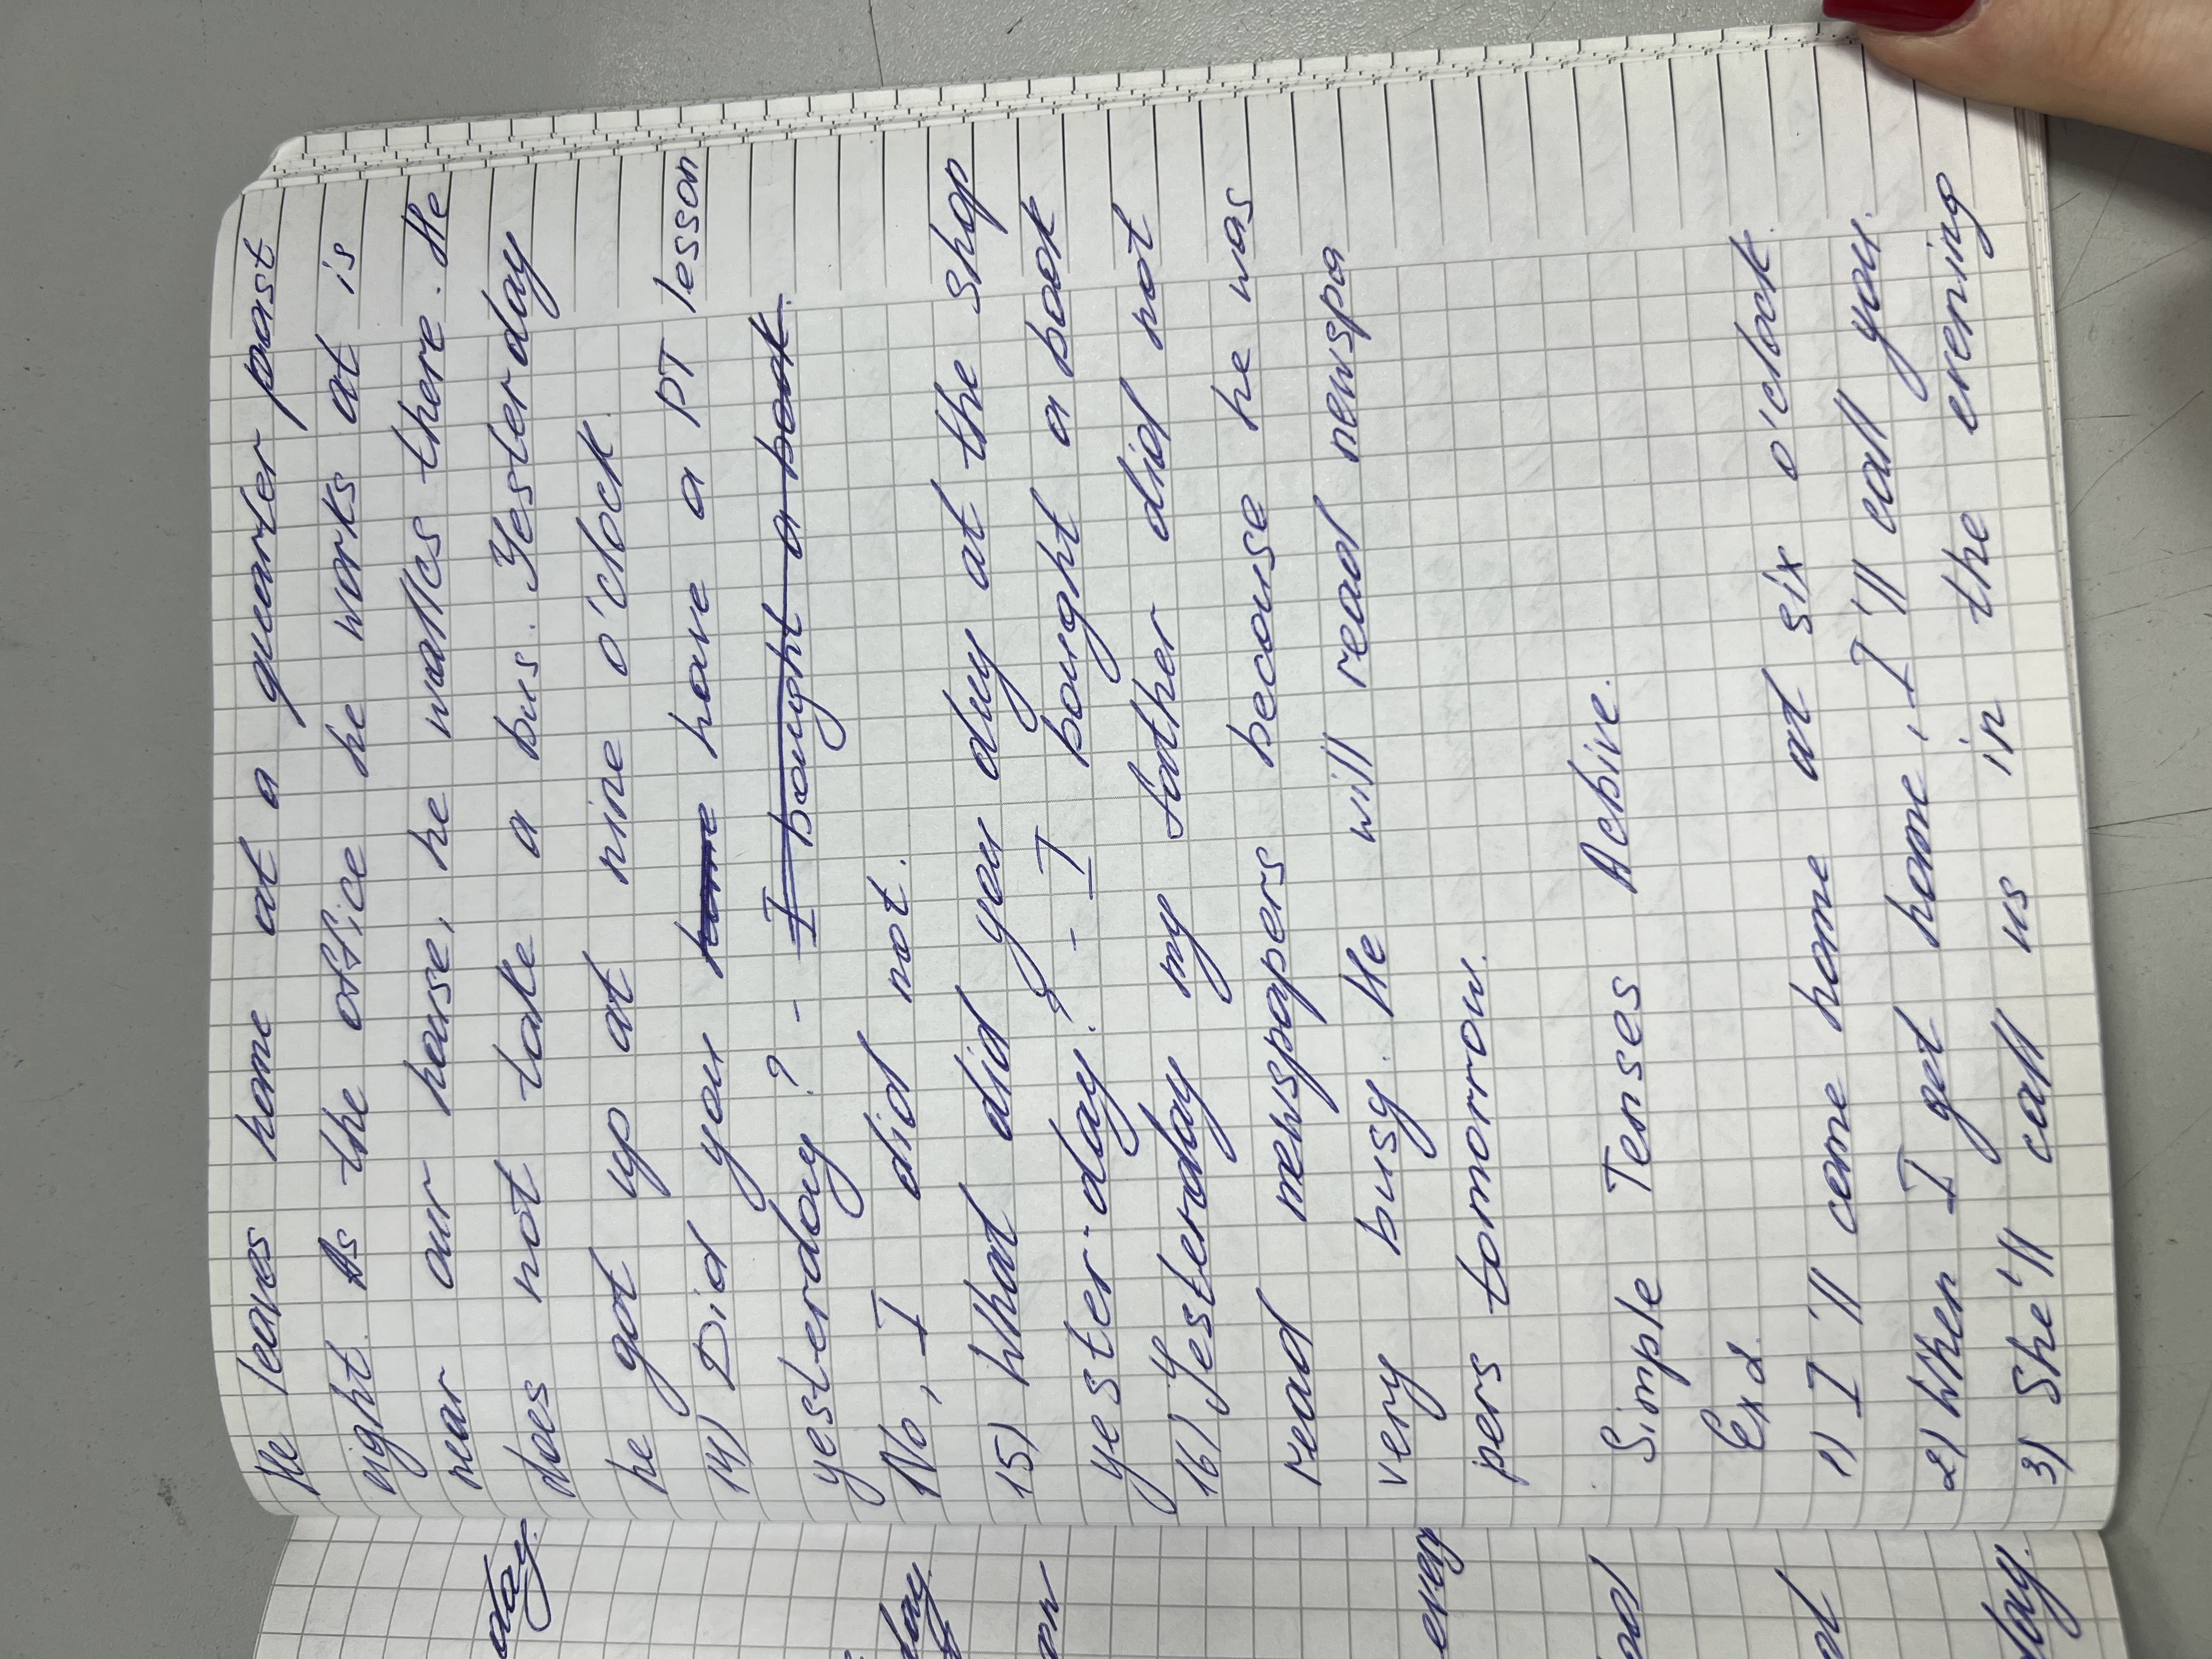 He leaves home at a quearter past
eight. As the office he works at is
near our house, he wallcs there. He
does not take a bus. Yesterday
he got up at nine o'clock.
14) Did you have a PT lesson
yesterday? -
No, I did not.
15) What did you duy at the shop
yester-day? - I bought a book
16) Yesterday my father did not
read newspapers becouse he was
very busy. He will read newspa
pers tomorrow.
Simple Tenses Active.
Ex 2.
1) I'll come home at six o'clock.
2) When I get home, I'll call you.
3) She'll call us in the evening
day.
day
ow
every
day.